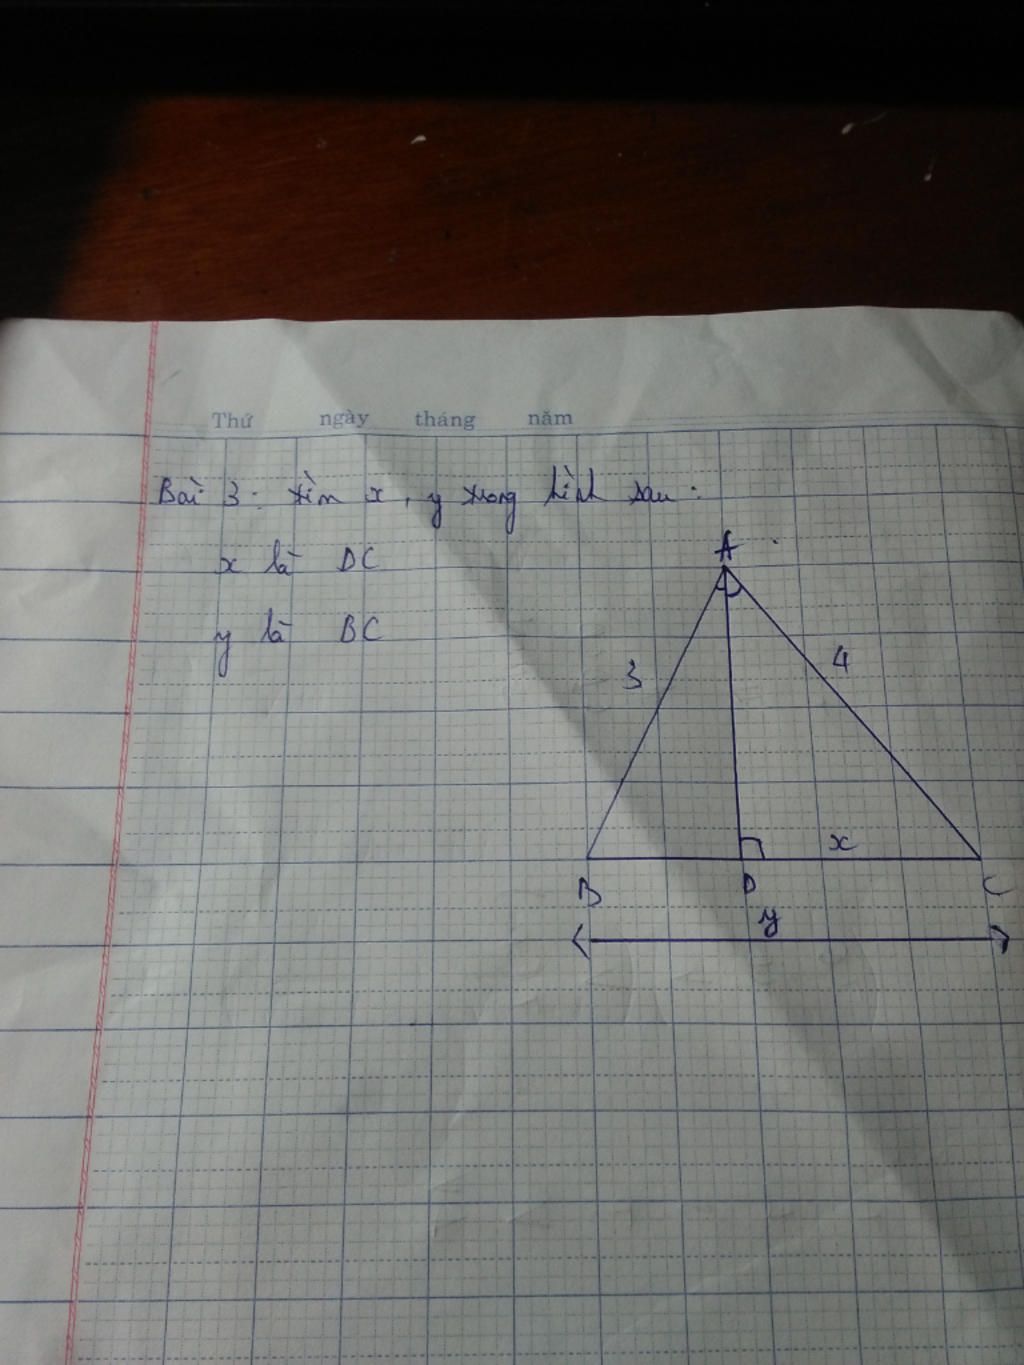 Thứ ngày tháng năm
Bài 3: tìm x, y trong hình sau:
x là DC
y là BC
A
3
4
x
B
D
C
y